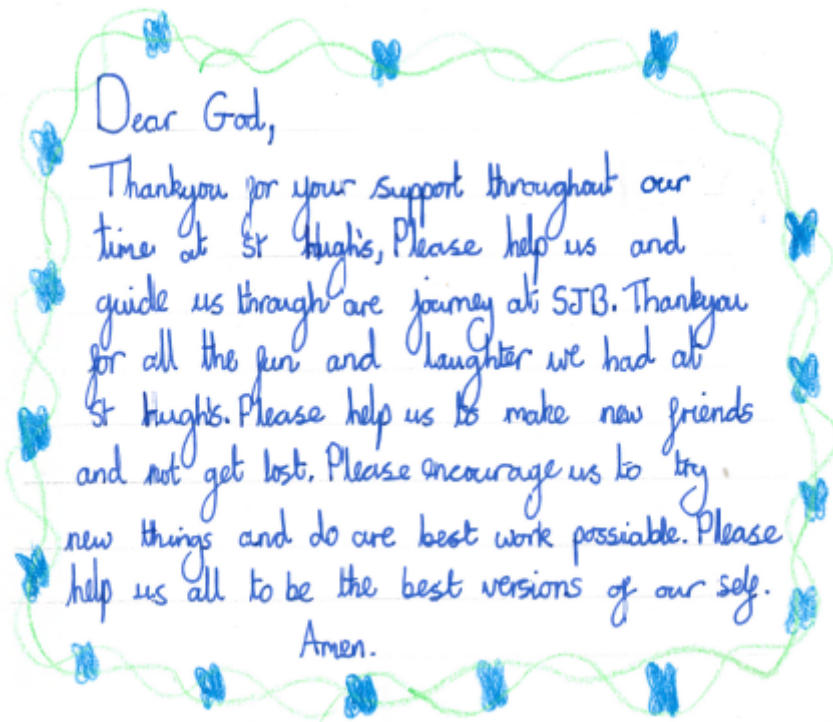 Dear God,
Thankyou for your support throughout our
time at St Hugh's, Please help us and
guide us through are journey at SJB. Thankyou
for all the fun and laughter we had at
St Hugh's. Please help us to make new friends
and not get lost. Please encourage us to try
new things and do are best work possiable. Please
help us all to be the best versions of our self.
Amen.